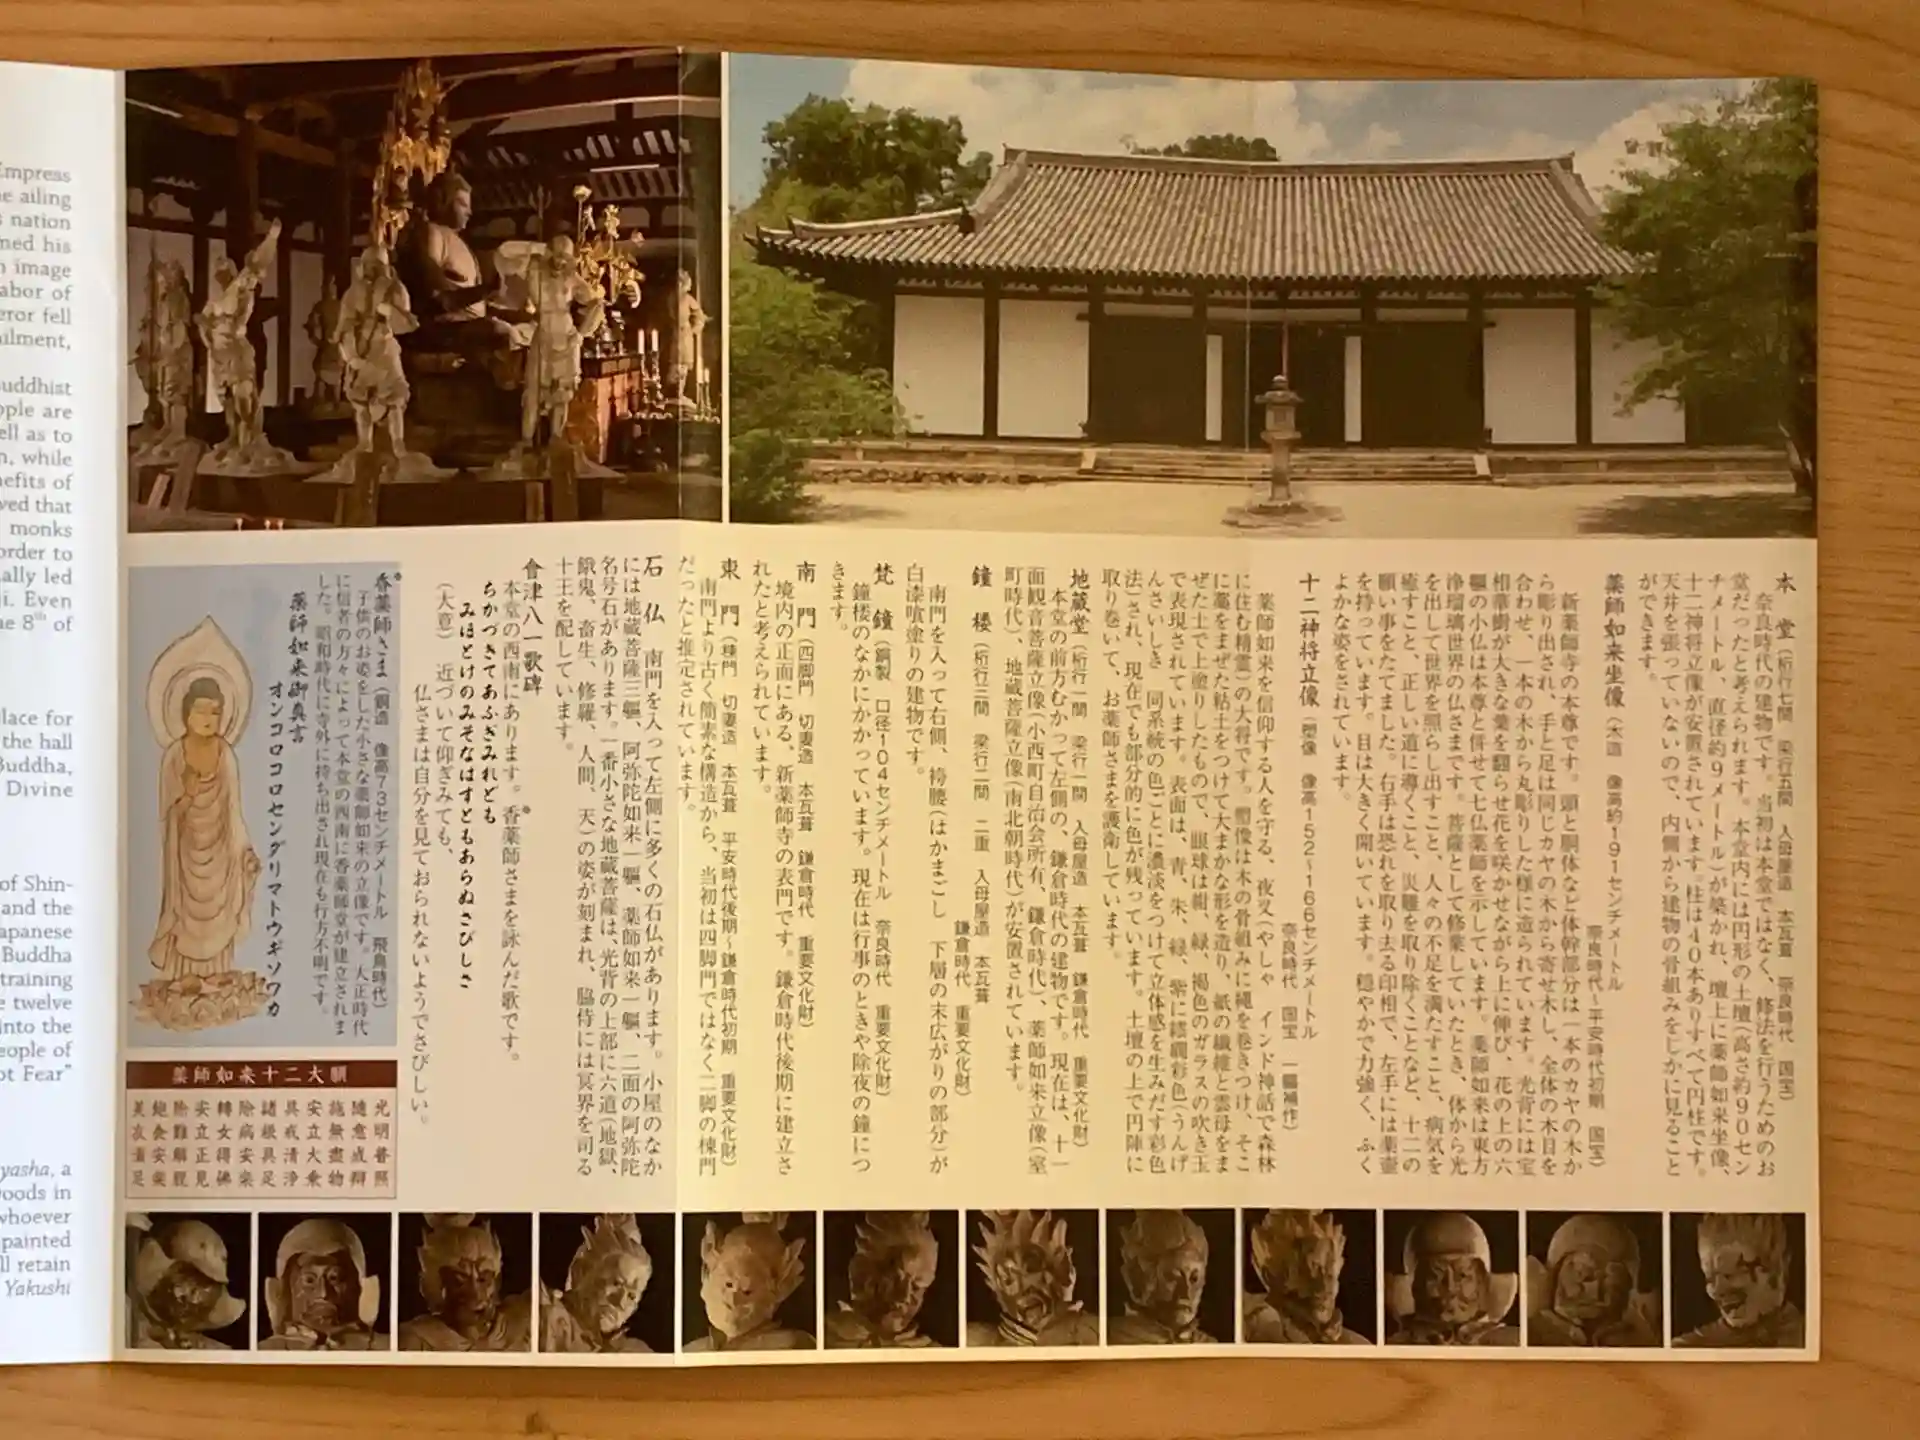 Empress
e ailing
s nation
med his
n image
abor of
eror fell
ailment,
uddhist
ople are
ell as to
n, while
nefits of
ved that
monks
order to
ally led
ji. Even
he 8th of
lace for
the hall
Buddha,
Divine
of Shin-
and the
apanese
Buddha
training
e twelve
into the
eople of
ot Fear"
yasha, a
oods in
whoever
painted
ll retain
Yakushi
本　堂（桁行七間　梁行五間　入母屋造　本瓦葺　奈良時代　国宝）
奈良時代の建物です。当初は本堂ではなく、修法を行うためのお
堂だったと考えられます。本堂内には円形の土壇（高さ約90セン
チメートル、直径約9メートル）が築かれ、壇上に薬師如来坐像、
十二神将立像が安置されています。柱は40本ありすべて円柱です。
天井を張っていないので、内側から建物の骨組みをじかに見ること
ができます。
薬師如来坐像（木造　像高約191センチメートル
奈良時代～平安時代初期　国宝）
新薬師寺の本尊です。頭と胴体など体幹部分は一本のカヤの木か
ら彫り出され、手と足は同じカヤの木から寄せ木し、全体の木目を
合わせ、一本の木から丸彫りした様に造られています。光背には宝
相華樹が大きな葉を翻らせ花を咲かせながら上に伸び、花の上の六
軀の小仏は本尊と併せて七仏薬師を示しています。薬師如来は東方
浄瑠璃世界の仏さまです。菩薩として修業していたとき、体から光
を出して世界を照らし出すこと、人々の不足を満たすこと、病気を
癒すこと、正しい道に導くこと、災難を取り除くことなど、十二の
願い事をたてました。右手は恐れを取り去る印相で、左手には薬壷
を持っています。目は大きく開いています。穏やかで力強く、ふく
よかな姿をされています。
十二神将立像（塑像　像高152～166センチメートル
奈良時代　国宝　一軀補作）
薬師如来を信仰する人を守る、夜叉（やしゃ　インド神話で森林
に住む精霊）の大将です。塑像は木の骨組みに縄を巻きつけ、そこ
に藁をまぜた粘土をつけて大まかな形を造り、紙の繊維と雲母をま
ぜた土で上塗りしたもので、眼球は紺、緑、褐色のガラスの吹き玉
で表現されています。表面は、青、朱、緑、紫に繧繝彩色（うんげ
んさいしき　同系統の色ごとに濃淡をつけて立体感を生みだす彩色
法）され、現在でも部分的に色が残っています。土壇の上で円陣に
取り巻いて、お薬師さまを護衛しています。
地蔵堂（桁行一間　梁行一間　入母屋造　本瓦葺　鎌倉時代　重要文化財）
本堂の前方むかって左側の、鎌倉時代の建物です。現在は、十一
面観音菩薩立像（小西町自治会所有、鎌倉時代）、薬師如来立像（室
町時代）、地蔵菩薩立像（南北朝時代）が安置されています。
鐘　楼（桁行三間　梁行二間　二重　入母屋造　本瓦葺
鎌倉時代　重要文化財）
南門を入って右側、袴腰（はかまごし　下層の末広がりの部分）が
白漆喰塗りの建物です。
梵　鐘（銅製　口径104センチメートル　奈良時代　重要文化財）
鐘楼のなかにかかっています。現在は行事のときや除夜の鐘につ
きます。
南　門（四脚門　切妻造　本瓦葺　鎌倉時代　重要文化財）
境内の正面にある、新薬師寺の表門です。鎌倉時代後期に建立さ
れたと考えられています。
東　門（棟門　切妻造　本瓦葺　平安時代後期～鎌倉時代初期　重要文化財）
南門より古く簡素な構造から、当初は四脚門ではなく二脚の棟門
だったと推定されています。
石　仏　南門を入って左側に多くの石仏があります。小屋のなか
には地蔵菩薩三軀、阿弥陀如来一軀、薬師如来一軀、二面の阿弥陀
名号石があります。一番小さな地蔵菩薩は、光背の上部に六道（地獄、
餓鬼、畜生、修羅、人間、天）の姿が刻まれ、脇侍には冥界を司る
十王を配しています。
會津八一歌碑
本堂の西南にあります。香薬師さまを詠んだ歌です。
ちかづきてあふぎみれども
みほとけのみそなはすともあらぬさびしさ
（大意）　近づいて仰ぎみても、
仏さまは自分を見ておられないようでさびしい。
香薬師さま（銅造　像高73センチメートル　飛鳥時代）
子供のお姿をした小さな薬師如来の立像です。大正時代
に信者の方々によって本堂の西南に香薬師堂が建立されま
した。昭和時代に寺外に持ち出され現在も行方不明です。
薬師如来御真言
オンコロコロセンダリマトウギソワカ
薬師如来十二大願
光明普照
随意成辯
施無盡物
安立大乗
具戒清浄
諸根具足
除病安楽
轉女得佛
安立正見
除難解脱
飽食安楽
美衣満足